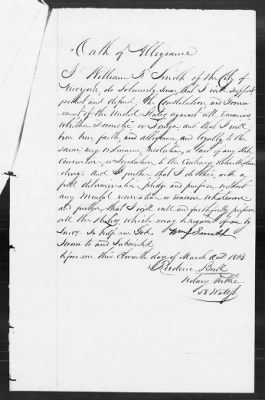 Oath of Allegiance
I William F Smith of the City of
New York, do Solemnly Swear, that I will support
protect and defend the Constitution, and Govern
ment of the United States against all enemies
whether Domestic or Foreign and that I will
bear true faith, and allegiance, and loyalty to the
same any ordinance, Resolution, or law of any State
Convention, or Legislature to the Contrary Notwithstan
ding: And further, that I do this with a
full determination, pledge and purpose, without
any mental reservation or evasion whatsoever
and further, that I will well and faithfully perform
all the duties, which may be required of me by
Law. So help me God
Wm F Smith
Sworn to and Subscribed
before me this day of March A.D. 1863
Notary Public